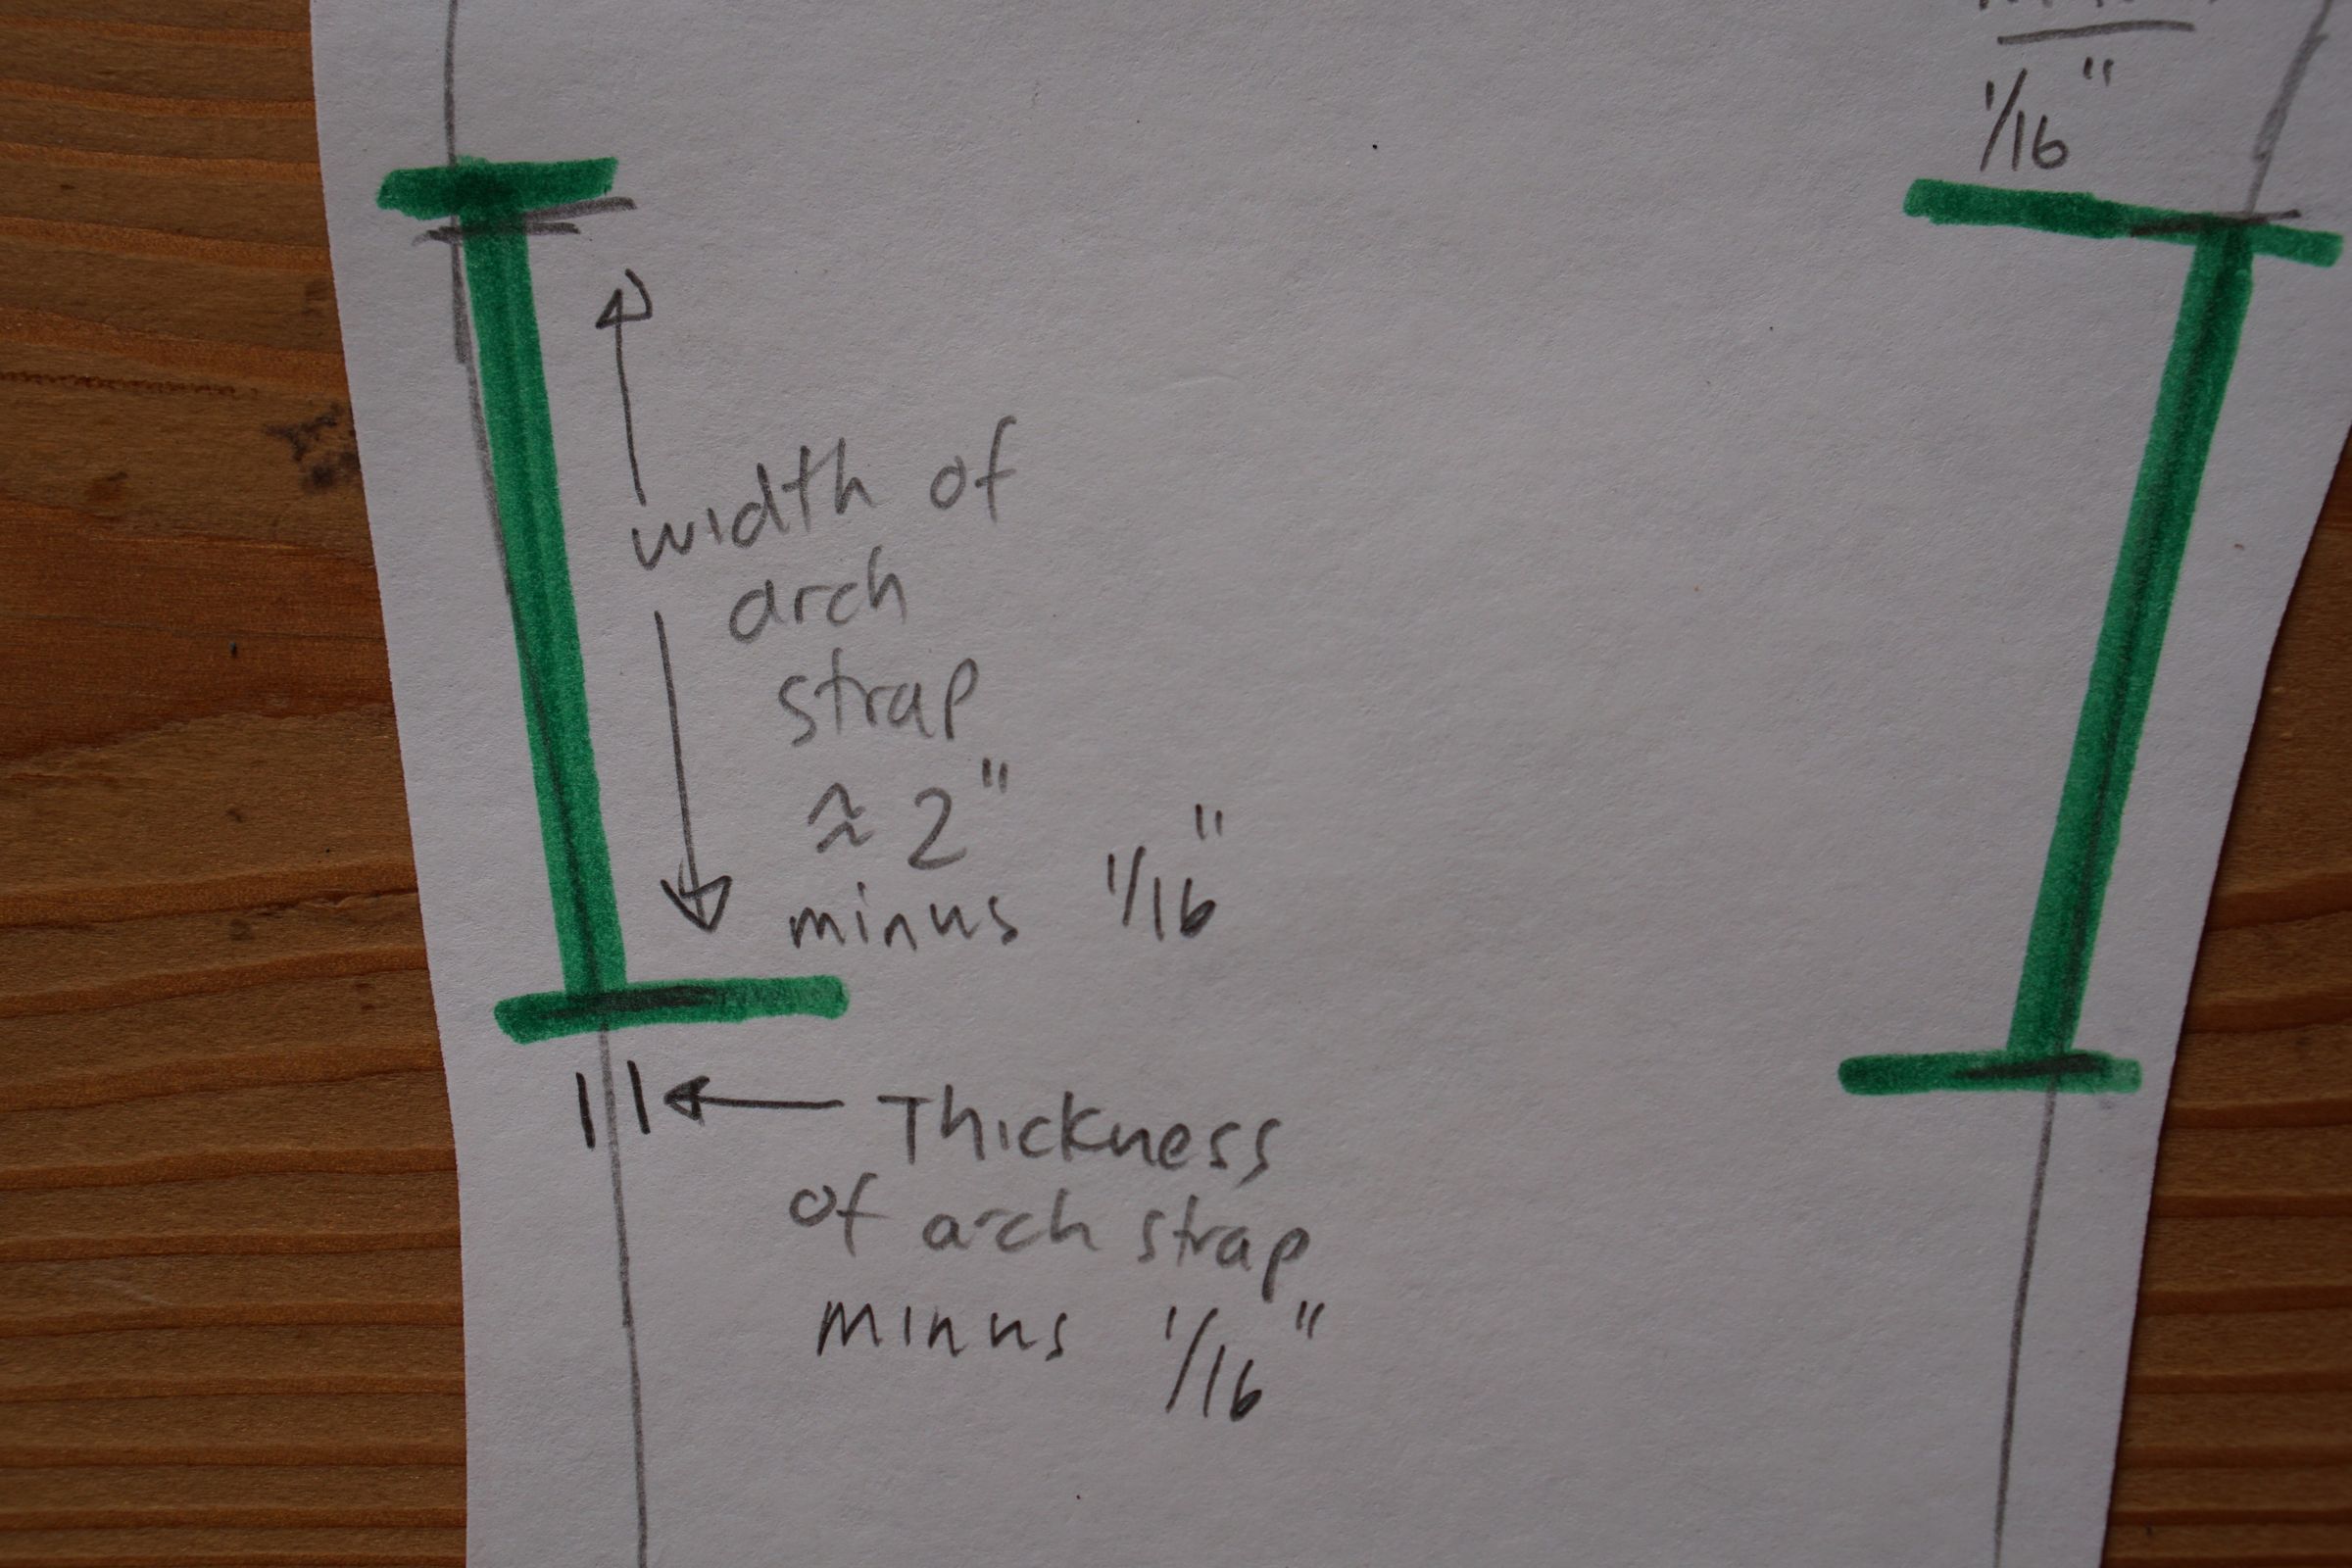 1/16"
width of
arch
strap
≈ 2"
minus 1/16"
Thickness
of arch strap
minus 1/16"